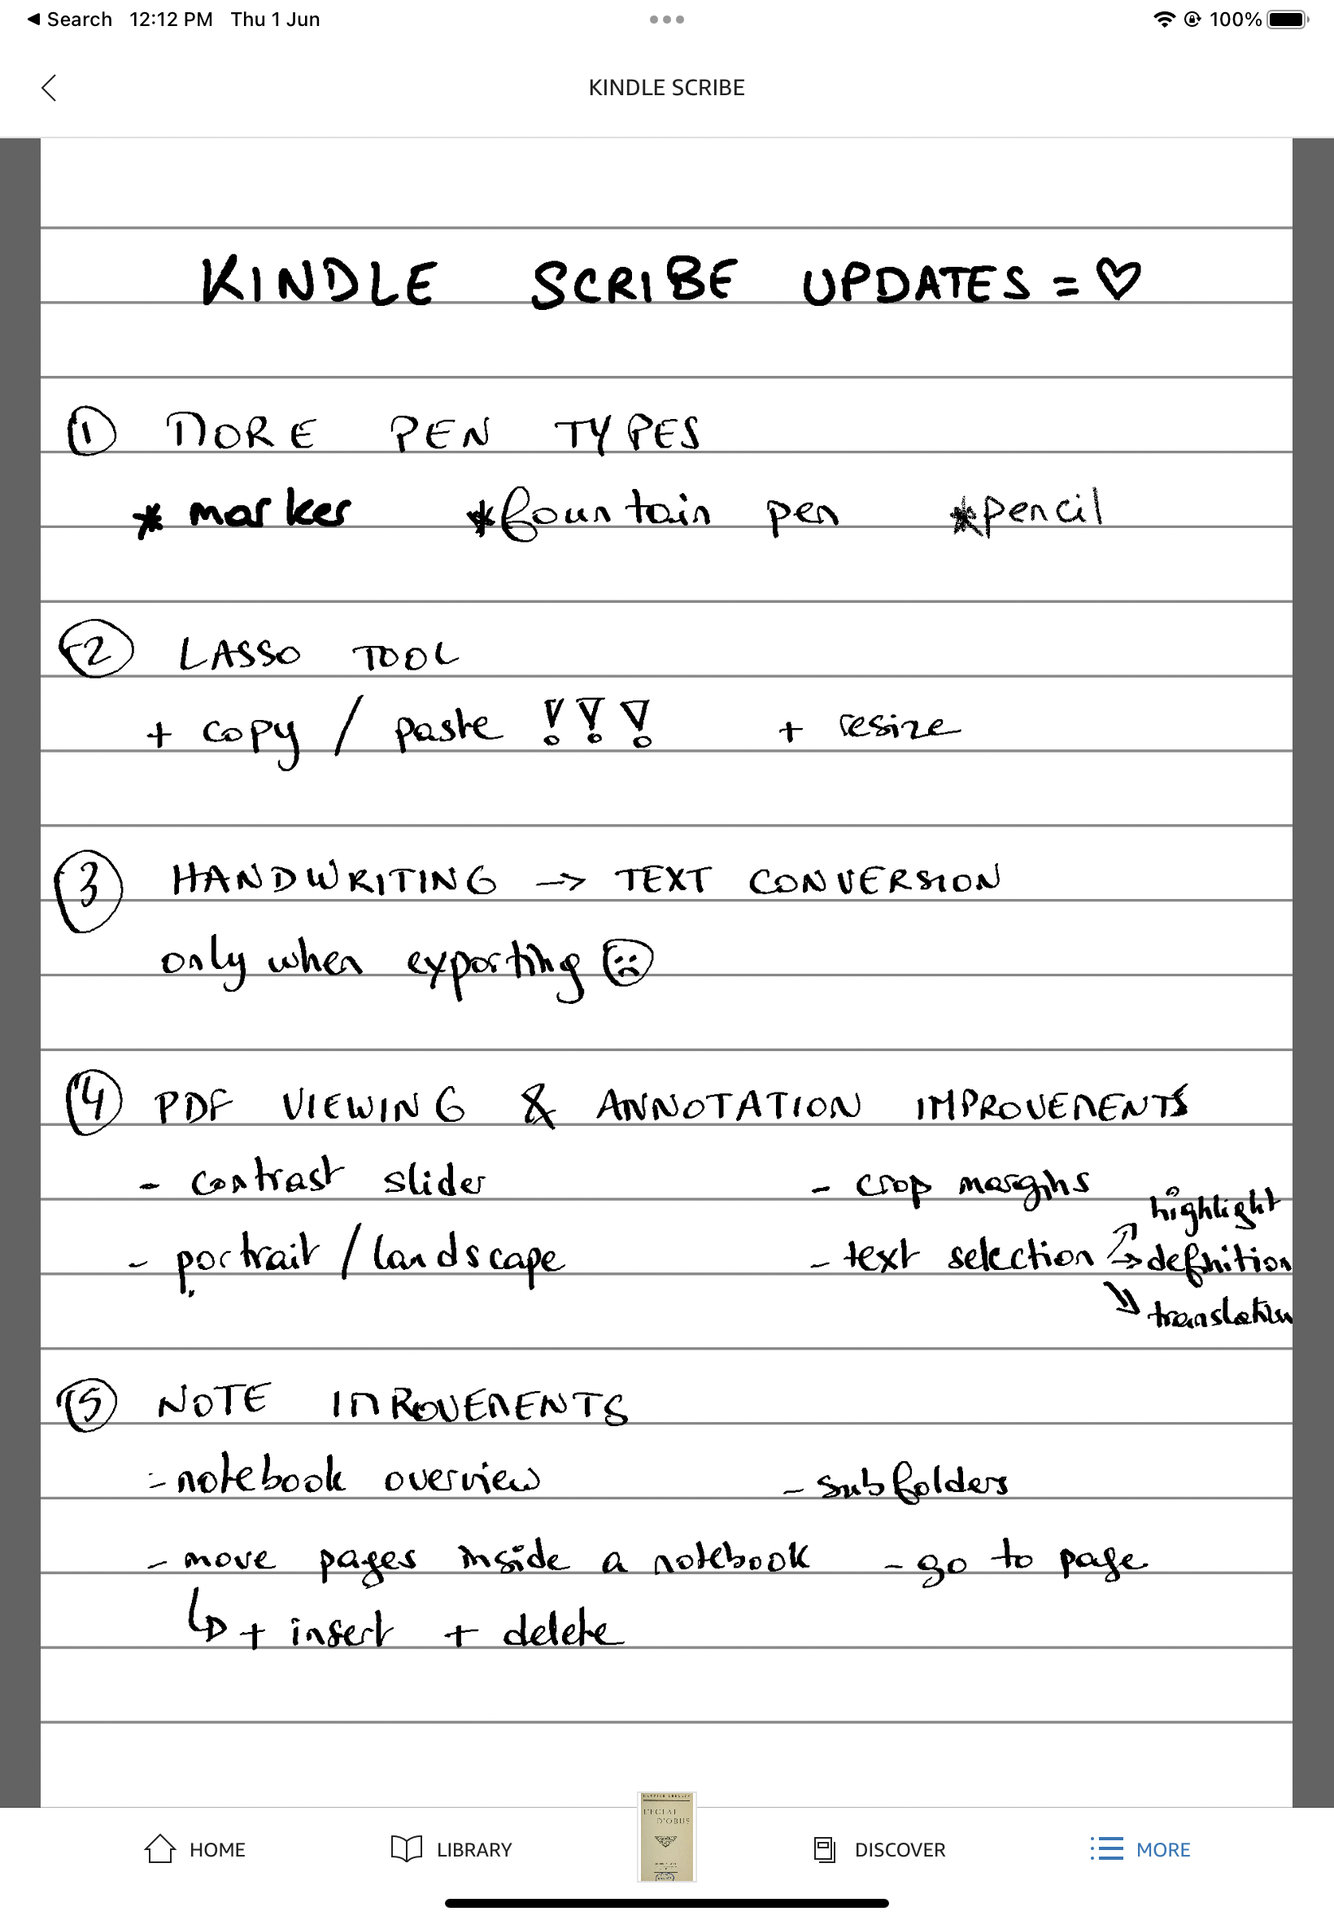 Search 12:12 PM Thu 1 Jun 100%
KINDLE SCRIBE
KINDLE SCRIBE UPDATES = ♡
① MORE PEN TYPES
* marker * fountain pen * pencil
② LASSO TOOL
+ copy / paste !!! + resize
③ HANDWRITING -> TEXT CONVERSION
only when exporting ☹
④ PDF VIEWING & ANNOTATION IMPROVEMENTS
- contrast slider - crop margins
highlight
- portrait / landscape - text selection → definition
translation
⑤ NOTE IMROVEMENTS
- notebook overview - subfolders
- move pages inside a notebook - go to page
↳ + insert + delete
L'ECLAT
D'OBUS
HOME LIBRARY DISCOVER MORE